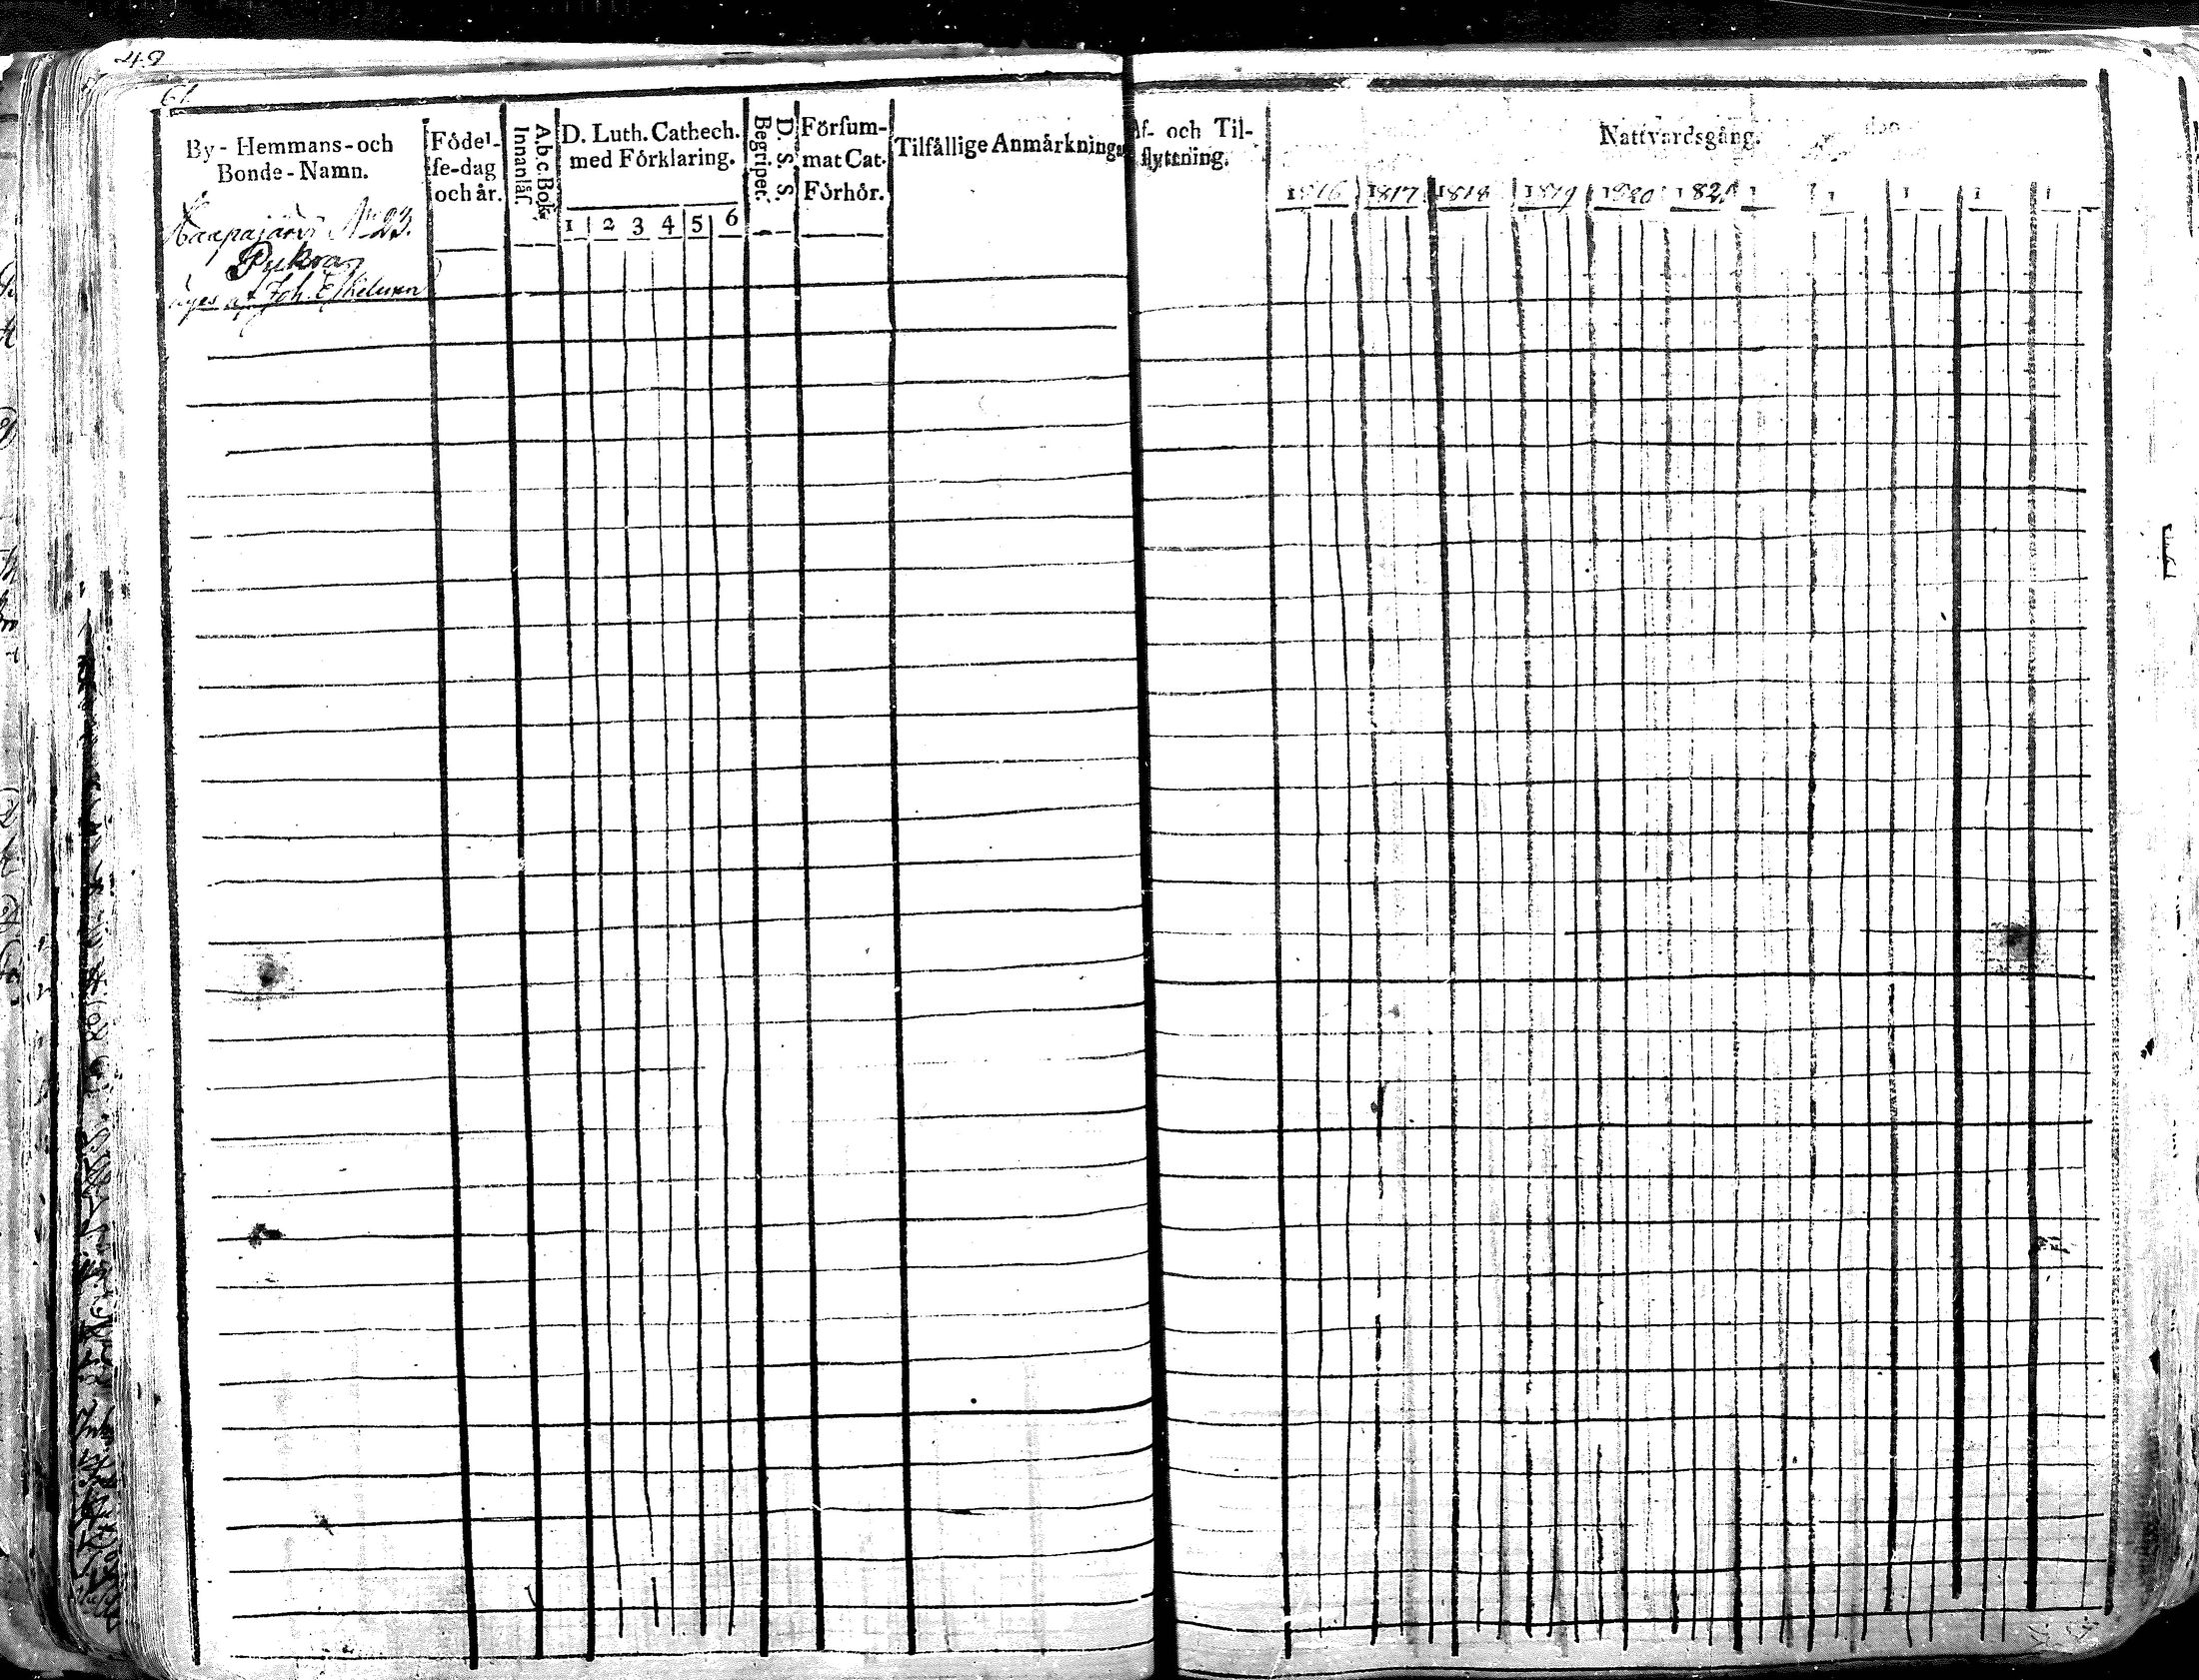 48
61.
By - Hemmans - och
Bonde - Namn.
Födel-
se-dag
och år.
A.b.c. Bok.
Innanläs.
D. Luth. Cathech.
med Förklaring.
1 2 3 4 5 6
D. S. S.
Begripet.
Försum-
mat Cat.
Förhör.
Tilfällige Anmärkning
Af- och Til-
flyttning.
Nattvardsgång.
1816 1817 1818 1819 1820 1821 1 1 1 1 1
No 23.
Pukra
af Joh. Eskelinen